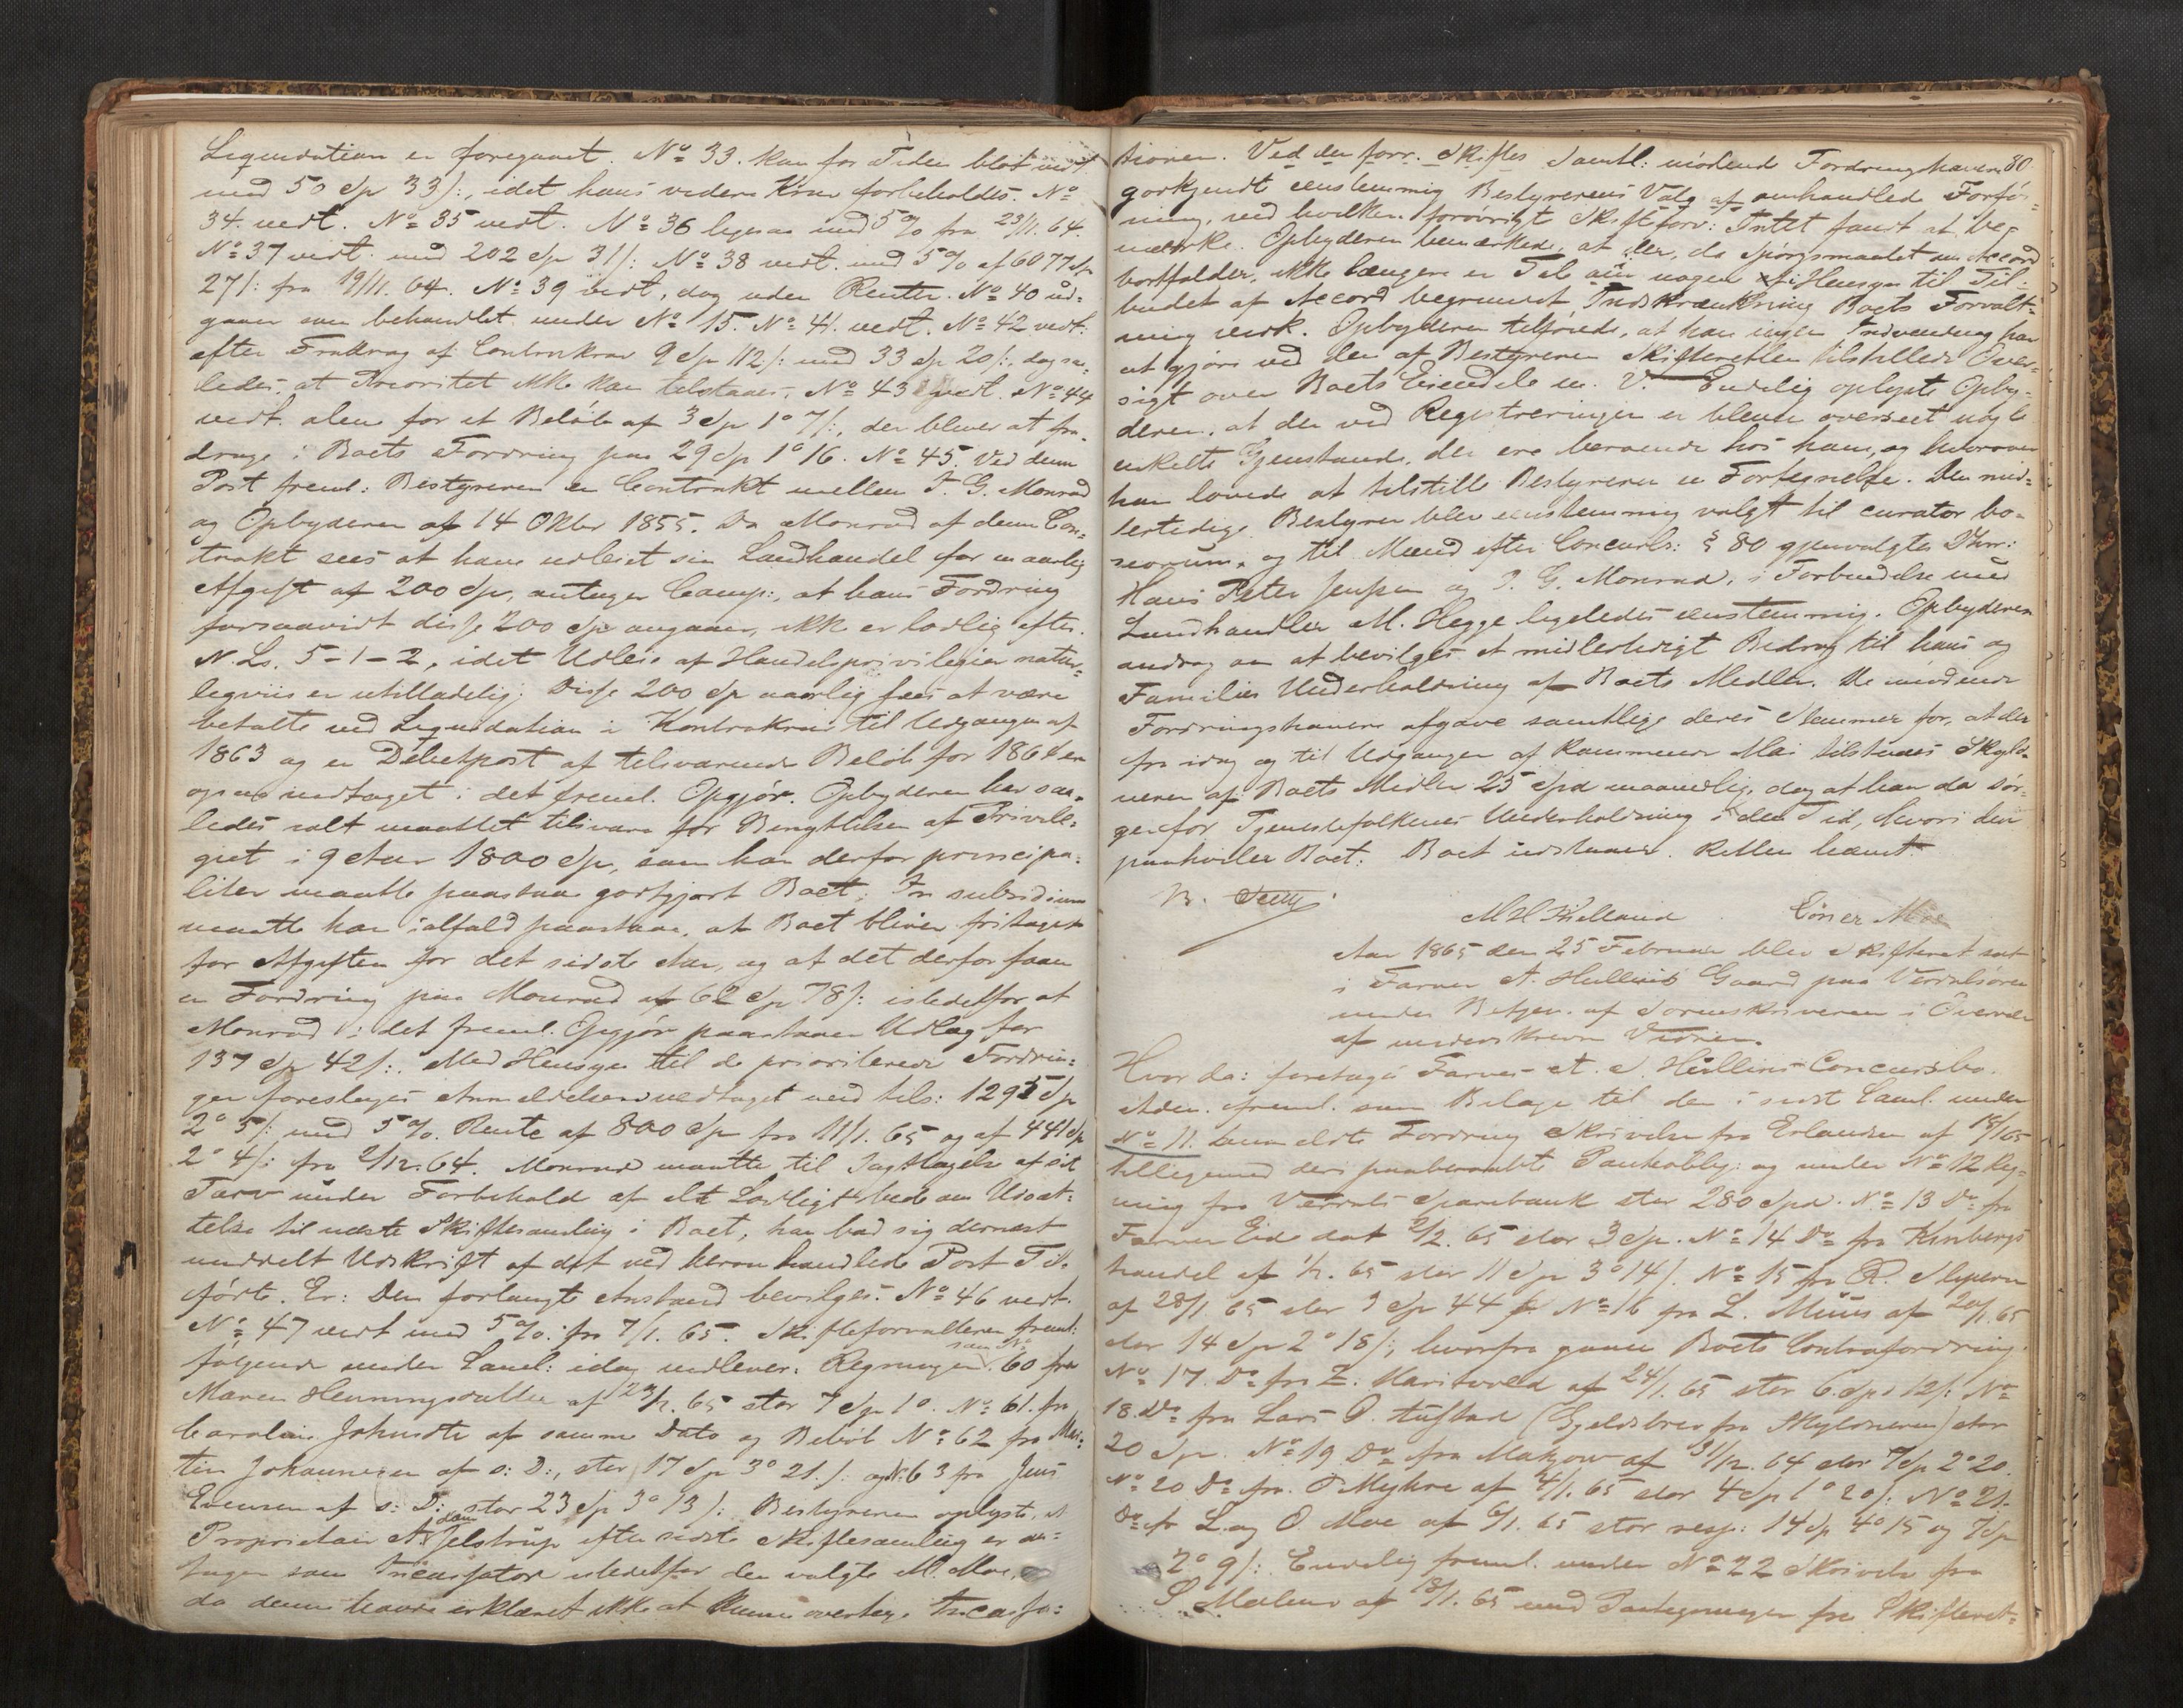 Liquidation er foregaaet. No 33. kan for Tiden blot vedt.
med 50 Sp 33 /:, idet hans videre Krav forbeholdes. No
34. vedt. No 35 vedt. No 36 ligesaa med 5 % fra 23/11. 64.
No 37 vedt. med 202 Sp 31 /: No 38 vedt. med 5 % af 6077 Sp
27 /: fra 19/11. 64. No 39 vedt, dog uden Renter. No 40 ud-
gaaer som behandlet under No 15. No 41. vedt. No 42 vedt:
efter Fradrag af Contrakrav 9 Sp 112 /: med 33 Sp 20 /:, dog saa-
ledes, at Prioritet ikke kan tilstaaes, No 43 vedt. No 44
vedt. alene for et Beløb af 3 Sp 1o 7 /:, der bliver at fra-
drage i Boets Fordring paa 29 Sp 1o 16. No 45. Ved denne
Post freml: Bestyreren en Contrakt mellem P. G. Monrad
og Opbyderen af 14 Oktbr 1855. Da Monrad af denne Con-
trakt sees at have udleiet sin Landhandel for en aarlig
Afgift af 200 Sp, antager Comp:, at hans Fordring
forsaavidt disse 200 Sp angaaer, ikke er lovlig efter
N. Ls. 5-1-2, idet Udleie af Handelsprivilegier natur-
ligviis er utilladelig. Disse 200 Sp aarlig sees at være
betalte ved Liquidation i Kontrakrav til Udgangen af
1863 og en Debetpost af tilsvarende Beløb for 1864 er
ogsaa indtaget i det freml. Opgjør. Opbyderen har saa-
ledes ialt maattet tilsvare for Benyttelsen af Privile-
giet i 9 Aar 1800 Sp, som han derfor principa-
liter maatte paastaa godtgjort Boet; In subsidium
maatte han ialfald paastaa, at Boet bliver fritaget
for Afgiften for det sidste Aar, og at det derfor faaer
en Fordring paa Monrad af 62 Sp 78 /: istedetfor at
Monrad i det freml. Opgjør paastaaer Udlæg for
137 Sp 42 /:. Med Hensyn til de prioriterede Fordrin-
ger foreslages Anmeldelsen vedtaget med tils: 1295 Sp
2o 5 /: med 5 %. Rente af 800 Sp fra 11/1. 65 og af 441 Sp
2o 4 /: fra 2/12. 64. Monrad maatte til Iagttagelse af sit
Tarv under Forbehold af alt Lovligt bede om Udsæt-
telse til næste Skiftesamling i Boet, han bad sig dernæst
meddelt Udskrift af det ved heromhandlede Post Til-
førte. Er: Den forlangte Anstand bevilges. No 46 vedt.
No 47 vedt med 5 %. fra 7/1. 65. Skifteforvalteren freml:
følgende under Saml: idag indlever. Regninger som No 60 fra
Maren Henningsdatter af 24/2. 65 stor 7 Sp 1o. No 61. fra
Caroline Johnsdtr af samme Dato og Beløb No 62 fra Mar-
tin Johannesen af s: D:, stor 17 Sp 3o 21 /: og No 63 fra Jens
Evensen af s: D: stor 23 Sp 3o 13 /: Bestyreren oplyste, at
Proprietair Adam Jelstrup efter sidste Skiftesamling er an-
tagen som Incassator istedetfor den valgte M. Moe,
da denne havde erklæret ikke at kunne overtage Incassa-
tionen. Ved den forr. Skiftes Samtl: mødende Fordringshavere 80
godkjendt eenstemmig Bestyrerens Valg af omhandlede Forfø-
ning, ved hvilken forøvrigt Skifteforv: Intet fandt at be-
mærke. Opbyderen bemærkede, at der, da Spørgsmaalet om Accord
bortfalder, ikke længere er Tale om nogen i Hensyn til Til-
budet af Accord begrundet Indskrænkning Boets Forvalt-
ning vedk. Opbyderen tilførede, at han ingen Indvending har
at gjøre ved den af Bestyreren Skifteretten tilstillede Over-
sigt over Boets Eiendele m. V. Endelig oplyste Opby-
deren, at der ved Registreringen er bleven overseet nogle
enkelte Gjenstande, der ere beroende hos ham, og hvorover
han lovede at tilstille Bestyreren en Fortegnelse. Den mid-
lertidige Bestyrer blev eenstemmig valgt til curator bo-
norum, og til Mænd efter Concursl: § 80 gjenvalgtes Dhrr:
Hans Peter Jenssen og P. G. Monrad, i Forbindelse med
Landhandler M. Hegge ligeledes eenstemmig. Opbyderen
androg om at bevilges et midlertidigt Bidrag til hans og
Families Underholdning af Boets Midler. De mødende
Fordringshavere afgave samtlige deres Stemmer for, at der
fra idag og til Udgangen af kommende Mai tilstaaes Skyld-
neren af Boets Midler 25 Spd maanedlig, dog at han da sør-
ger for Tjenestefolkenes Underholdning i den Tid, hvori den
paahviler Boet. Boet udstaaer. Retten hævet.
M H Kielland Einer Moe
Aar 1865 den 25 Februar blev Skifteret sat
i Farver A. Hullins Gaard paa Verdalsøren
under Betjen. af Sorenskriveren i Overvær
af underskrevne Vidner.
Hvor da: foretages Farver A. S. Hullins Concursbo.
Adm. freml. som Bilage til den i sidst Saml. under
No 11. anmeldte Fordring Skrivelse fra Erlandsen af 18/1 65
tilligemed den paaberaabte Panteobl: og under No 12 Reg-
ning fra Værdals Sparebank stor 280 Spd. No 13 Do fra
Farver Eide dat 2/2. 65 stor 3 Sp. No 14 Do fra Kinbergs
handel af 1/2. 65 stor 11 Sp 3o 14 /. No 15 fra R. Slipern
af 28/1 65 stor 9 Sp 44 /: No 16 fra L. Müus af 20/1 65
stor 14 Sp 2o 18 /:, hvorfra gaaer Boets Contrafordring.
No 17. Do fra Z. Maritvold af 24/1. 65 stor 6 Sp 12 /: No
18. Do fra Lars O. Aufstad (Gjeldsbrev fra Skyldneren) stor
20 Sp. No 19 Do fra Matzow af 31/12. 64 stor 7 Sp 2o 20.
No 20 Do fra O Myhre af 4/1. 65 stor 4 Sp 1o 20 /: No 21.
Do fr L. og O Moe af 6/1. 65 stor resp: 14 Sp 4o 15 og 7 Sp
2o 9 /: Endelig freml. under No 22 Skrivelse fra
S af 18/1. 65 med Paategninger fra Skifteret-